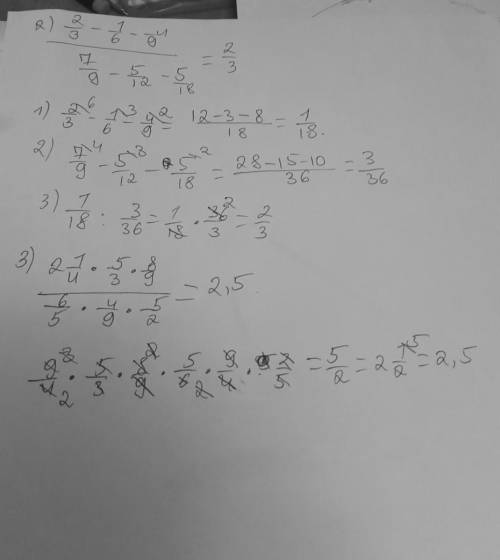 2) 2/3 - 1/6 - 4/9
7/9 - 5/12 - 5/18 = 2/3
1) 2/3 ⁶ - 1/6 ³ - 4/9 ² = 12-3-8/18 = 1/18.
2) 7/9 ⁴ - 5/12 ³ - 5/18 ² = 28-15-10/36 = 3/36
3) 1/18 : 3/36 = 1/18 · 36²/3 = 2/3
3) 2 1/4 · 5/3 · 8/9
6/5 · 4/9 · 5/2 = 2,5.
9/4 · 5/3 · 8/9 · 5/6 · 9/4 · 2/5 = 5/2 = 2 1/2 ⁵ = 2,5